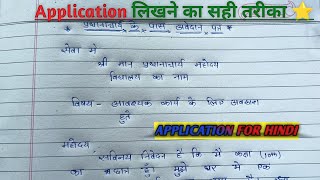 Application लिखने का सही तरीका
प्रधानाचार्य के पास आवेदन पत्र
सेवा में
श्री मान प्रधानाचार्य महोदय
विद्यालय का नाम
विषय - आवश्यक कार्य के लिए अवकाश
हेतु
APPLICATION FOR HINDI
महोदय
सविनय निवेदन है कि मैं कक्षा (10th)
का छात्र हूँ। मुझे घर में एक